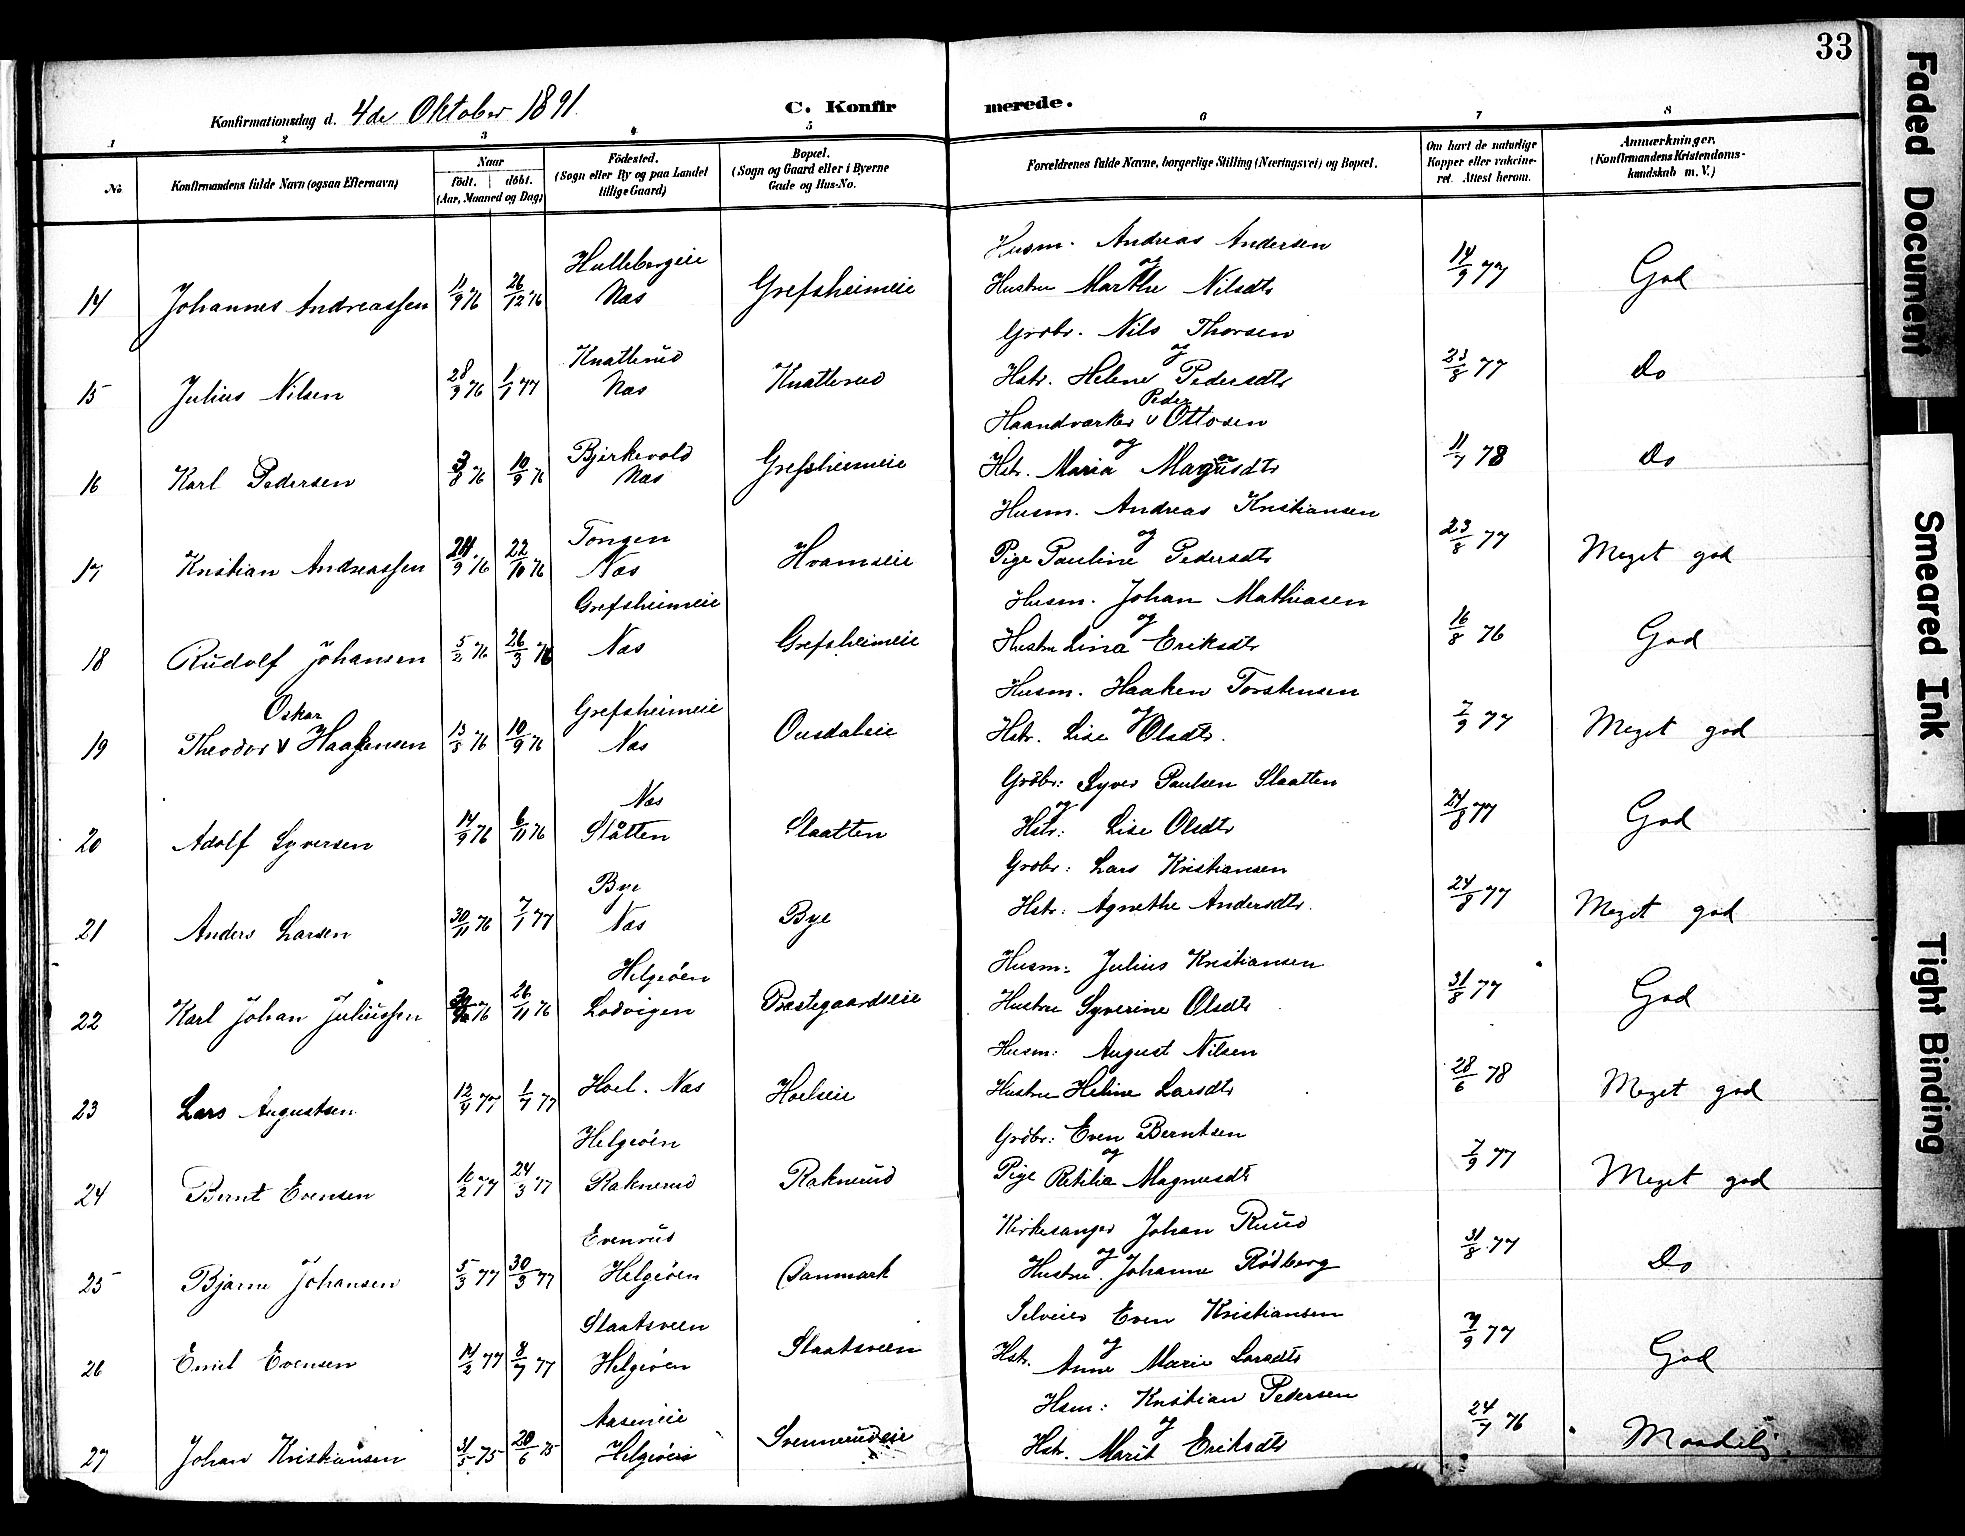 33
Konfirmationsdag d. 4de Oktober 1891.
C. Konfirmerede.
1 2 3 4 5 6 7 8
No
Konfirmandens fulde Navn (ogsaa Efternavn)
Naar
födt. | döbt.
(Aar, Maaned og Dag)
Födested.
(Sogn eller By og paa Landet
tillige Gaard)
Bopæl.
(Sogn og Gaard eller i Byerne
Gade og Hus-No.
Forældrenes fulde Navne, borgerlige Stilling (Næringsvei) og Bopæl.
Om havt de naturlige
Kopper eller vaccine-
ret. Attest herom.
Anmærkninger,
(Konfirmandens Kristendoms-
kundskab m. V.)
Hullebergeie Husm. Andreas Andersen
og
14 Johannes Andreassen 11/9 76 26/12 76 Næs Grefsheimeie Hustru Marthe Nilsdtr 14/9 77 God
Knatterud Grdbr. Nils Thorsen
og
15 Julius Nilsen 77 Næs Knatterud Hstr. Helene Pedersdtr 23/8 77 Do
Peder
Bjerkevold Haandværker v Ottosen
og
16 Karl Pedersen 3/8 76 10/9 76 Næs Grefsheimeie Hstr. Maria Magnusdtr 78 Do
Tongen Husm. Andreas Kristiansen
og
17 Kristian Andreassen 76 22/10 76 Næs Hvamseie Pige Pauline Pedersdtr 23/8 77 Meget god
Grefsheimeie Husm. Johan Mathiasen
og
18 Rudolf Johansen 5/2 76 26/3 76 Næs Grefsheimeie Hustru Lina Eriksdtr 16/8 76 God
Oskar Grefsheimeie Husm. Haaken Torstensen
og
19 Theodor v Haakensen 76 10/9 76 Næs Ousdaleie Hstr. Lise Olsdtr. 7/9 77 Meget god
Næs Grdbr: Syver Paulsen Slaatten
og
20 Adolf Syversen 14/9 76 6/11 76 Slåtten Slaatten Hstr: Lise Olsdtr 24/8 77 God
Bye Grdbr: Lars Kristiansen
21 Anders Larsen 30/11 76 7/1 77 Næs Bye Hstr: Agnethe Andersdtr. 24/8 77 Meget god
Helgeöen Husm: Julius Kristiansen
22 Karl Johan Juliussen 76 26/11 76 Lodvigen Præstegaardseie Hustru Syverine Olsdtr 31/8 77 God
Husm: August Nilsen
23 Lars Augustsen 12/4 77 1/7 77 Hoel. Næs Hoelseie Hustru Helene Larsdtr 28/6 78 Meget god
Helgeöen Grdbr: Even Berntsen
og
24 Bernt Evensen 77 24/3 77 Raknerud Raknerud Pige Magnusdtr 7/9 77 Meget god
Evenrud Kirkesanger Johan Ruud
og
25 Bjarne Johansen 5/3 77 30/3 77 Helgeöen Danmark Hustru. Johanne Rödberg 31/8 77 Do
Slaatsveen Selveier Even Kristiansen
og
26 Emil Evensen 14/2 77 8/7 77 Helgeöen Slaatsveen Hstr. Anne Marie Larsdtr 7/9 77 God
Aaseneie Hsm: Kristian Pedersen
og
27 Johan Kristiansen 31/5 75 20/6 75 Helgeöen Svennerudeie Hstr. Marit Eriksdtr 24/7 76 Maadelig.
Faded Document
Smeared Ink
Tight Binding